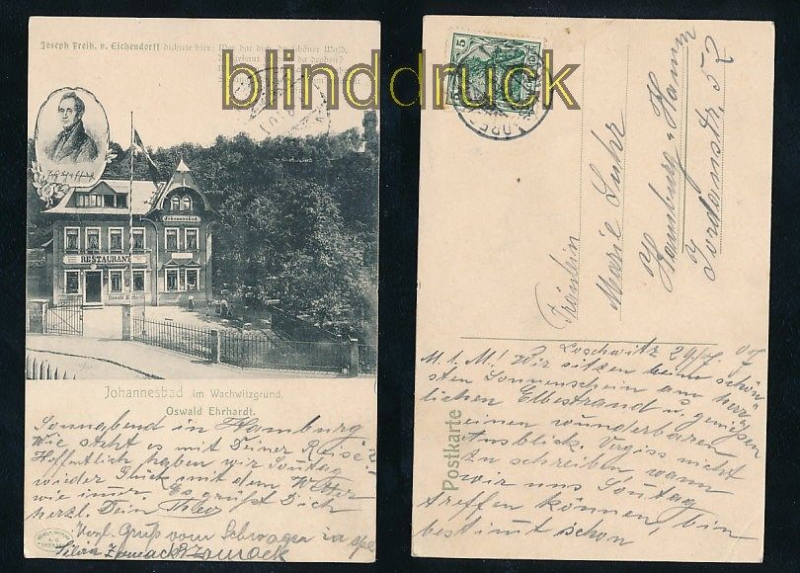 blinddruck
Joseph Freih. v. Eichendorff dichtete hier: Wer hat dich, du schöner Wald,
da droben?
Johannesbad
RESTAURANT
Johannesbad im Wachwitzgrund.
Oswald Ehrhardt.
Sonnabend in Hamburg
Wie steht es mit Deiner Reise?
Hoffentlich haben wir Sontag
wieder Glück mit dem Wetter
wie immer. Es grüßt Dich
herzl. Dein Theo
Herzl. Gruß vom Schwager in spe
5
Fräulein
Marie Luhr
Hamburg-Hamm
Jordanstr. 52
Postkarte
Loschwitz 29/7. 07
M. l. M! Wir sitzen beim schön-
sten Sonnenschein am herr-
lichen Elbestrand u. genießen
einen wunderbaren
Ausblick. Vergiss nicht
zu schreiben wann
wir uns Sontag
treffen können, bin
bestimt schon